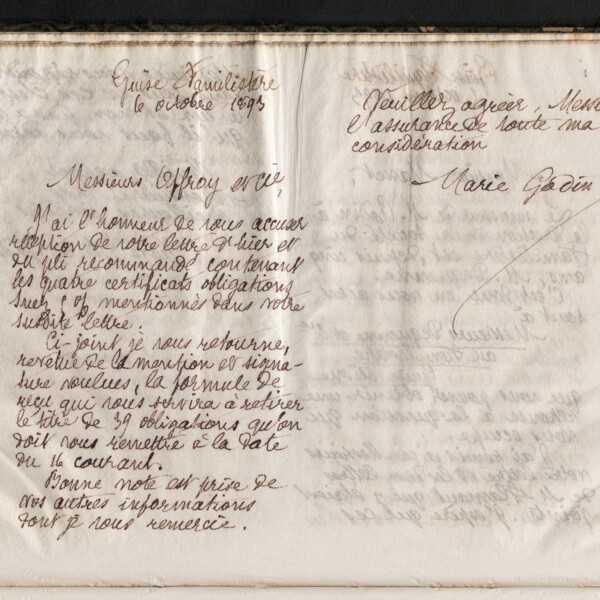 Guise Familistère
6 octobre 1893
Messieurs Offroy et Cie,
J'ai l'honneur de vous accuser
réception de votre lettre d'hier et
du pli recommandé contenant
les quatre certificats obligations
Suez 5 % mentionnés dans votre
susdite lettre.
Ci-joint je vous retourne,
revêtue de la mention et signa-
ture voulues, la formule de
reçu qui vous servira à retirer
le titre de 39 obligations qu'on
doit vous remettre à la date
du 16 courant.
Bonne note est prise de
vos autres informations
dont je vous remercie.
Veuillez agréer, Messie
l'assurance de toute ma
considération
Marie Godin